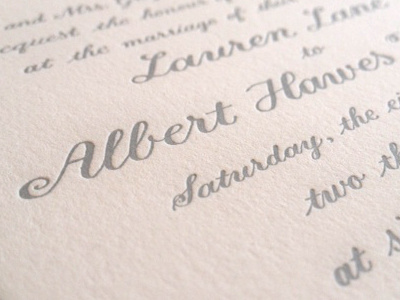 and Mrs. G
request the honour o
at the marriage of thi
Lauren Lane
to
Albert Hawes
Saturday, the ei
two th
at si